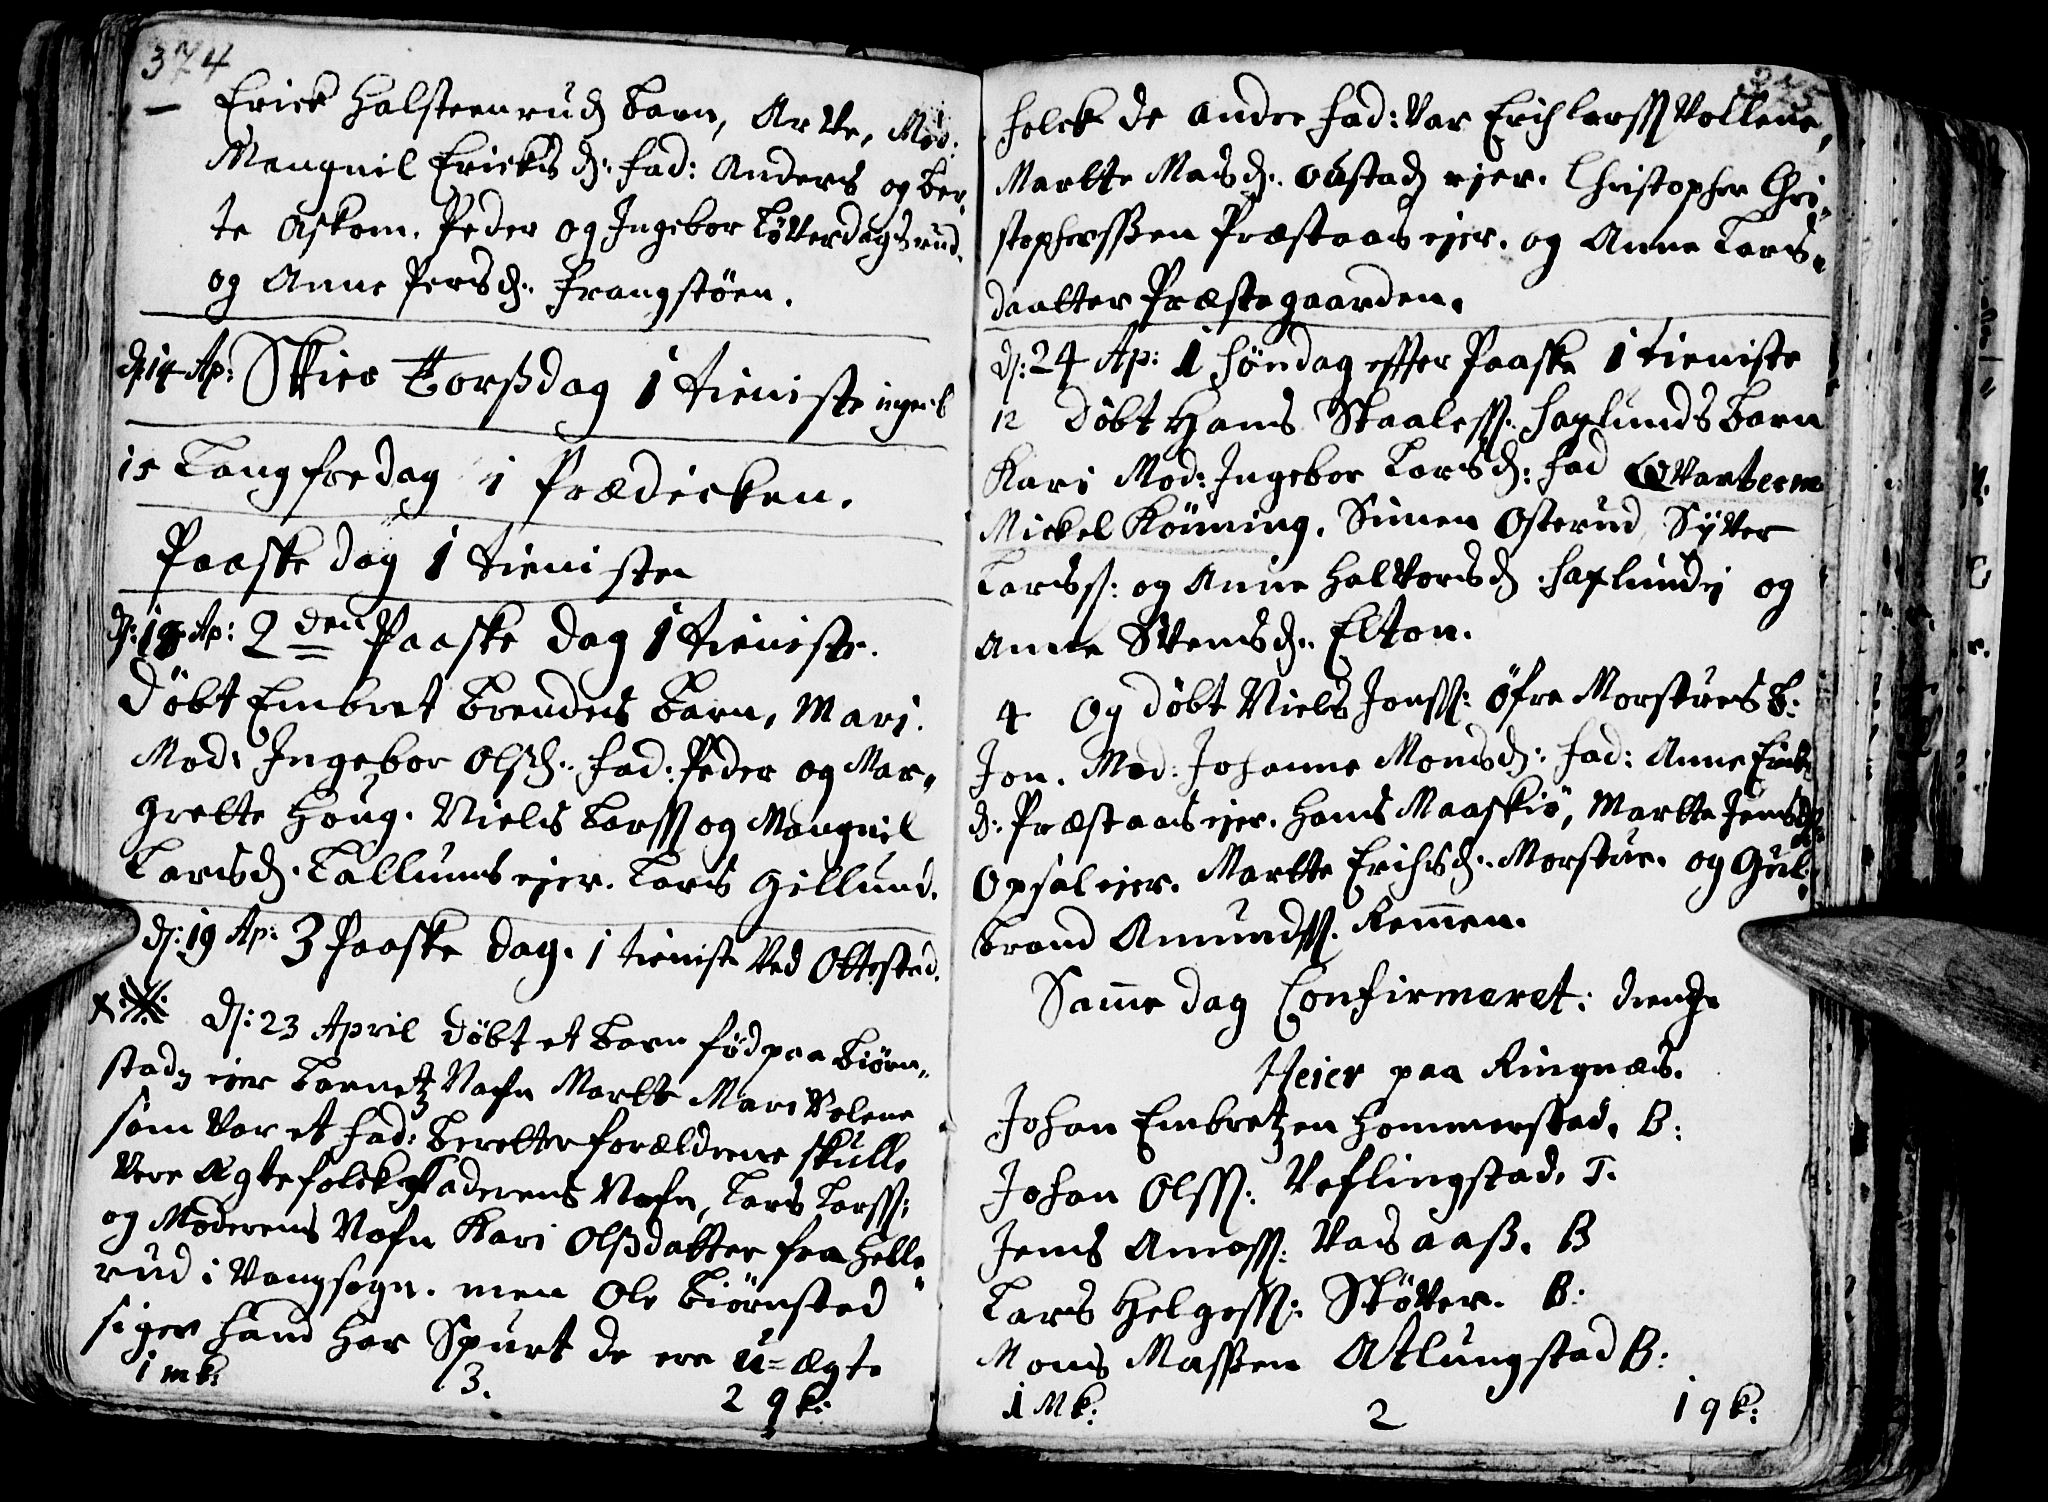 374
Erick Halsteenrud Barn, Arve, Mod:
Mangnil Ericks d: fad: Anders og Ber-
te Askom. Peder og Ingebor Løverdagsrud.
og Anne Persd: Frangstøen.
d: 14 Ap: Skier Torsdag 1 tieniste ingen b
15 Langfredag 1 Prædicken.
Paaske dag 1 tieniste
d: 18 Ap: 2 den Paaske dag 1 tieniste.
Døbt Embret Brendes Barn, Mari.
Mod: Ingebor Olsd: fad: Peder og Mar-
grette Houg. Niels Larss og Mangnil
Larsd. Tallums ejer. Lars Gillund.
d: 19 Ap: 3 Paaske dag. 1 tieniste Ved Ottestad.
d: 23 April Døbt et Barn fød paa Biørn-
stads ejer Barnetz Nafn Marte Mari Volene
som Var et fad: beretter forældrene skulle
Vere Ægtefolck Faderens Nafn, Lars Larss:
og Moderens Nafn Kari Olsdatter fra Helle-
rud i Vangsogn. men Ole Biørnsted
siger hand har Spurt de ere u=ægte
1 mk: 3. 2 qk:
375
folck de andre fad: Var Erich Larss Vollene,
Marte Madsd: Obstad ejer. Christopher Chri-
stopherssen Præstaas ejer. og Anne Lars-
daatter Præstegaarden.
d: 24 Ap: 1 Søndag effter Paaske 1 tieniste
12 Døbt Hans Staaless: Haslunds Barn
Kari Mod: Ingebor Larsd: fad Qvarterm
Mickel Kønning. Simen Osterud, Syver
Larss: og Anne Halvorsd: Haslundej og
Anne Svensd: Elton.
4 Og døbt Niels Jonss: øfre Morstues B:
Jon. Mod: Johanne Monsd: fad: Anne Embr
d: Præstaas ejer. Hans Maaskiø, Marte Jensd:
Opsal ejer. Marte Erichsd: Morstue. og Gul-
brand Amundss: Remmen.
Samme dag Confirmeret: drenge
Heier paa Ringnæs.
Johan Embretzen Hommerstad. B:
Johan Olss: Veflingstad. T.
Jens Amoss: Vasaas. B
Lars Helgess: Støver. B:
Mons Massen Atlungstad B:
1 Mk: 2 1 qk: